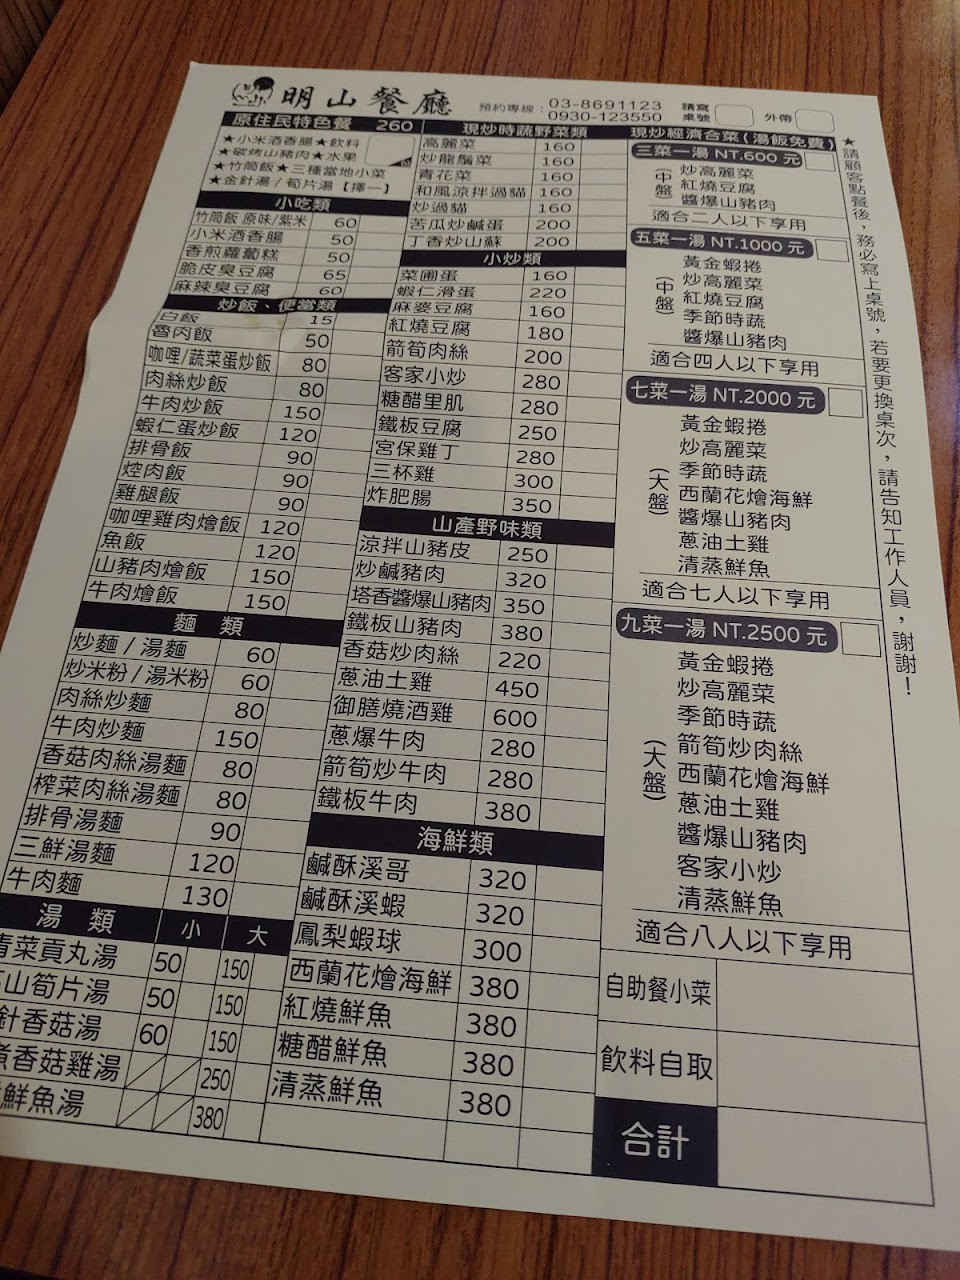 明山餐廳
預約專線：03-8691123
0930-123550
請寫桌號
外帶
原住民特色餐 260
★小米酒香腸★飲料
★碳烤山豬肉★水果
★竹筒飯★三種當地小菜
★金針湯/筍片湯【擇一】
小吃類
竹筒飯 原味/紫米 60
小米酒香腸 50
香煎蘿蔔糕 50
脆皮臭豆腐 65
麻辣臭豆腐 60
炒飯、便當類
白飯 15
魯肉飯 50
咖哩/蔬菜蛋炒飯 80
肉絲炒飯 80
牛肉炒飯 150
蝦仁蛋炒飯 120
排骨飯 90
焢肉飯 90
雞腿飯 90
咖哩雞肉燴飯 120
魚飯 120
山豬肉燴飯 150
牛肉燴飯 150
麵 類
炒麵/湯麵 60
炒米粉/湯米粉 60
肉絲炒麵 80
牛肉炒麵 150
香菇肉絲湯麵 80
榨菜肉絲湯麵 80
排骨湯麵 90
三鮮湯麵 120
牛肉麵 130
湯 類 小 大
青菜貢丸湯 50 150
山筍片湯 50 150
針香菇湯 60 150
香菇雞湯 250
鮮魚湯 380
現炒時蔬野菜類
高麗菜 160
炒龍鬚菜 160
青花菜 160
和風涼拌過貓 160
炒過貓 160
苦瓜炒鹹蛋 200
丁香炒山蘇 200
小炒類
菜圃蛋 160
蝦仁滑蛋 220
麻婆豆腐 160
紅燒豆腐 180
箭筍肉絲 200
客家小炒 280
糖醋里肌 280
鐵板豆腐 250
宮保雞丁 280
三杯雞 300
炸肥腸 350
山產野味類
涼拌山豬皮 250
炒鹹豬肉 320
塔香醬爆山豬肉 350
鐵板山豬肉 380
香菇炒肉絲 220
蔥油土雞 450
御膳燒酒雞 600
蔥爆牛肉 280
箭筍炒牛肉 280
鐵板牛肉 380
海鮮類
鹹酥溪哥 320
鹹酥溪蝦 320
鳳梨蝦球 300
西蘭花燴海鮮 380
紅燒鮮魚 380
糖醋鮮魚 380
清蒸鮮魚 380
現炒經濟合菜(湯飯免費)
三菜一湯 NT.600 元
(中盤)
炒高麗菜
紅燒豆腐
醬爆山豬肉
適合二人以下享用
五菜一湯 NT.1000 元
(中盤)
黃金蝦捲
炒高麗菜
紅燒豆腐
季節時蔬
醬爆山豬肉
適合四人以下享用
七菜一湯 NT.2000 元
(大盤)
黃金蝦捲
炒高麗菜
季節時蔬
西蘭花燴海鮮
醬爆山豬肉
蔥油土雞
清蒸鮮魚
適合七人以下享用
九菜一湯 NT.2500 元
(大盤)
黃金蝦捲
炒高麗菜
季節時蔬
箭筍炒肉絲
西蘭花燴海鮮
蔥油土雞
醬爆山豬肉
客家小炒
清蒸鮮魚
適合八人以下享用
自助餐小菜
飲料自取
合計
★請顧客點餐後，務必寫上桌號，若要更換桌次，請告知工作人員，謝謝！